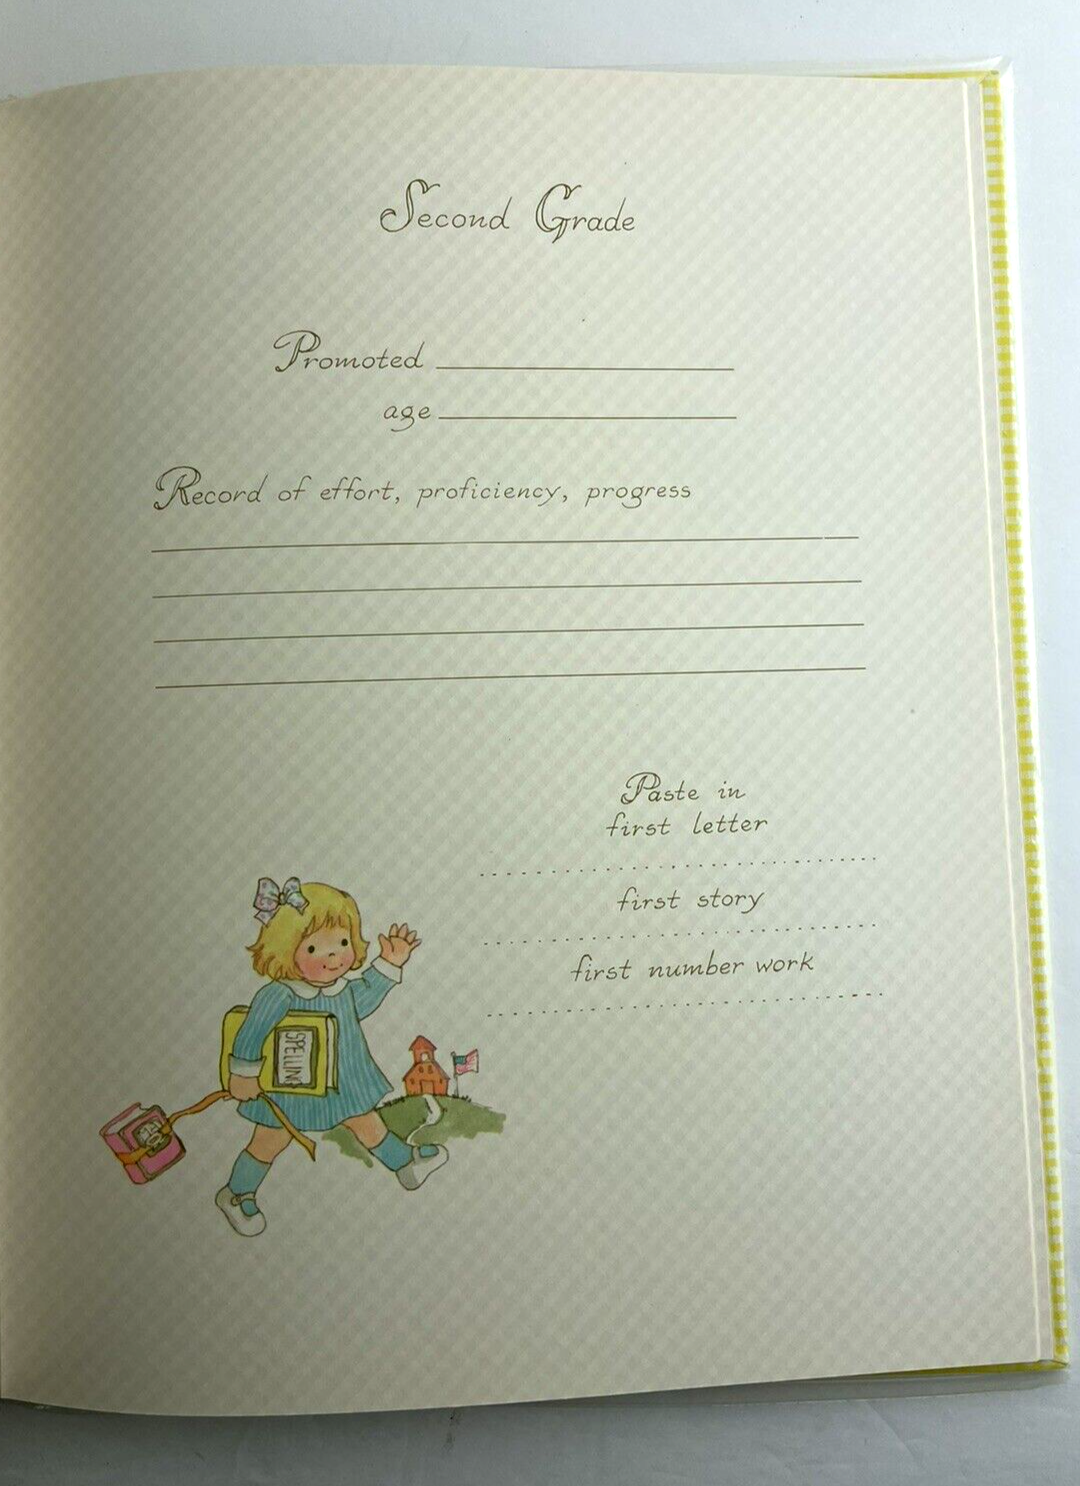 Second Grade
Promoted
age
Record of effort, proficiency, progress
Paste in
first letter
first story
first number work
SPELLING